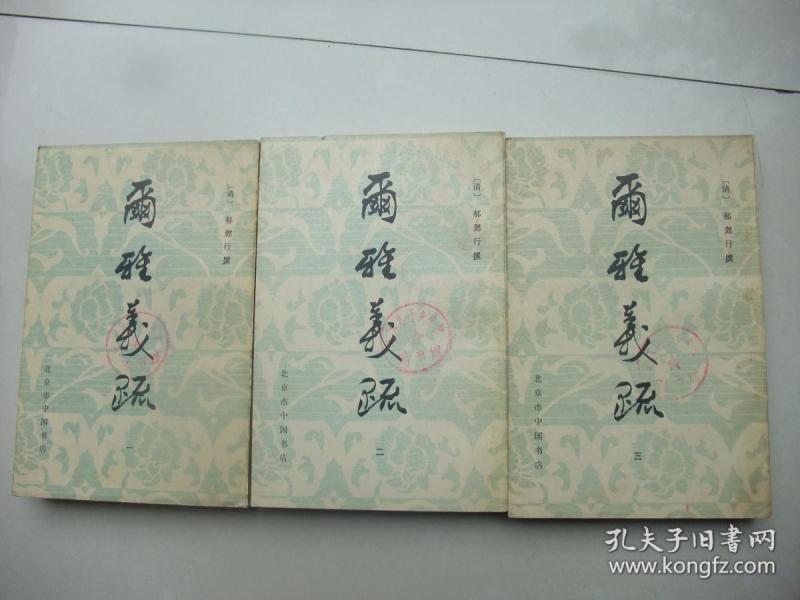 爾雅義疏
〔清〕郝懿行撰
北京市中国书店
一
爾雅義疏
〔清〕郝懿行撰
北京市中国书店
二
爾雅義疏
〔清〕郝懿行撰
北京市中国书店
三
孔夫子旧书网
www.kongfz.com